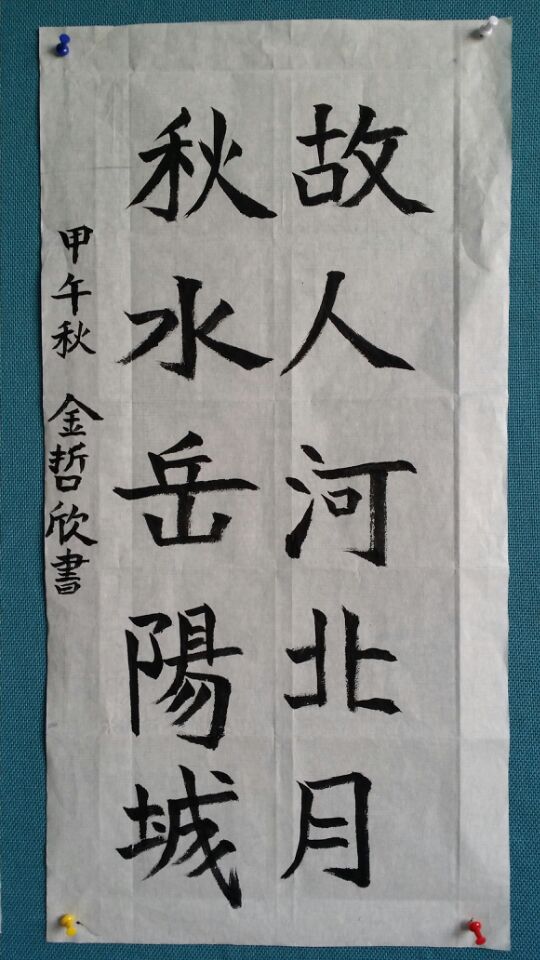 故人河北月
秋水岳陽城
甲午秋 金哲欣書